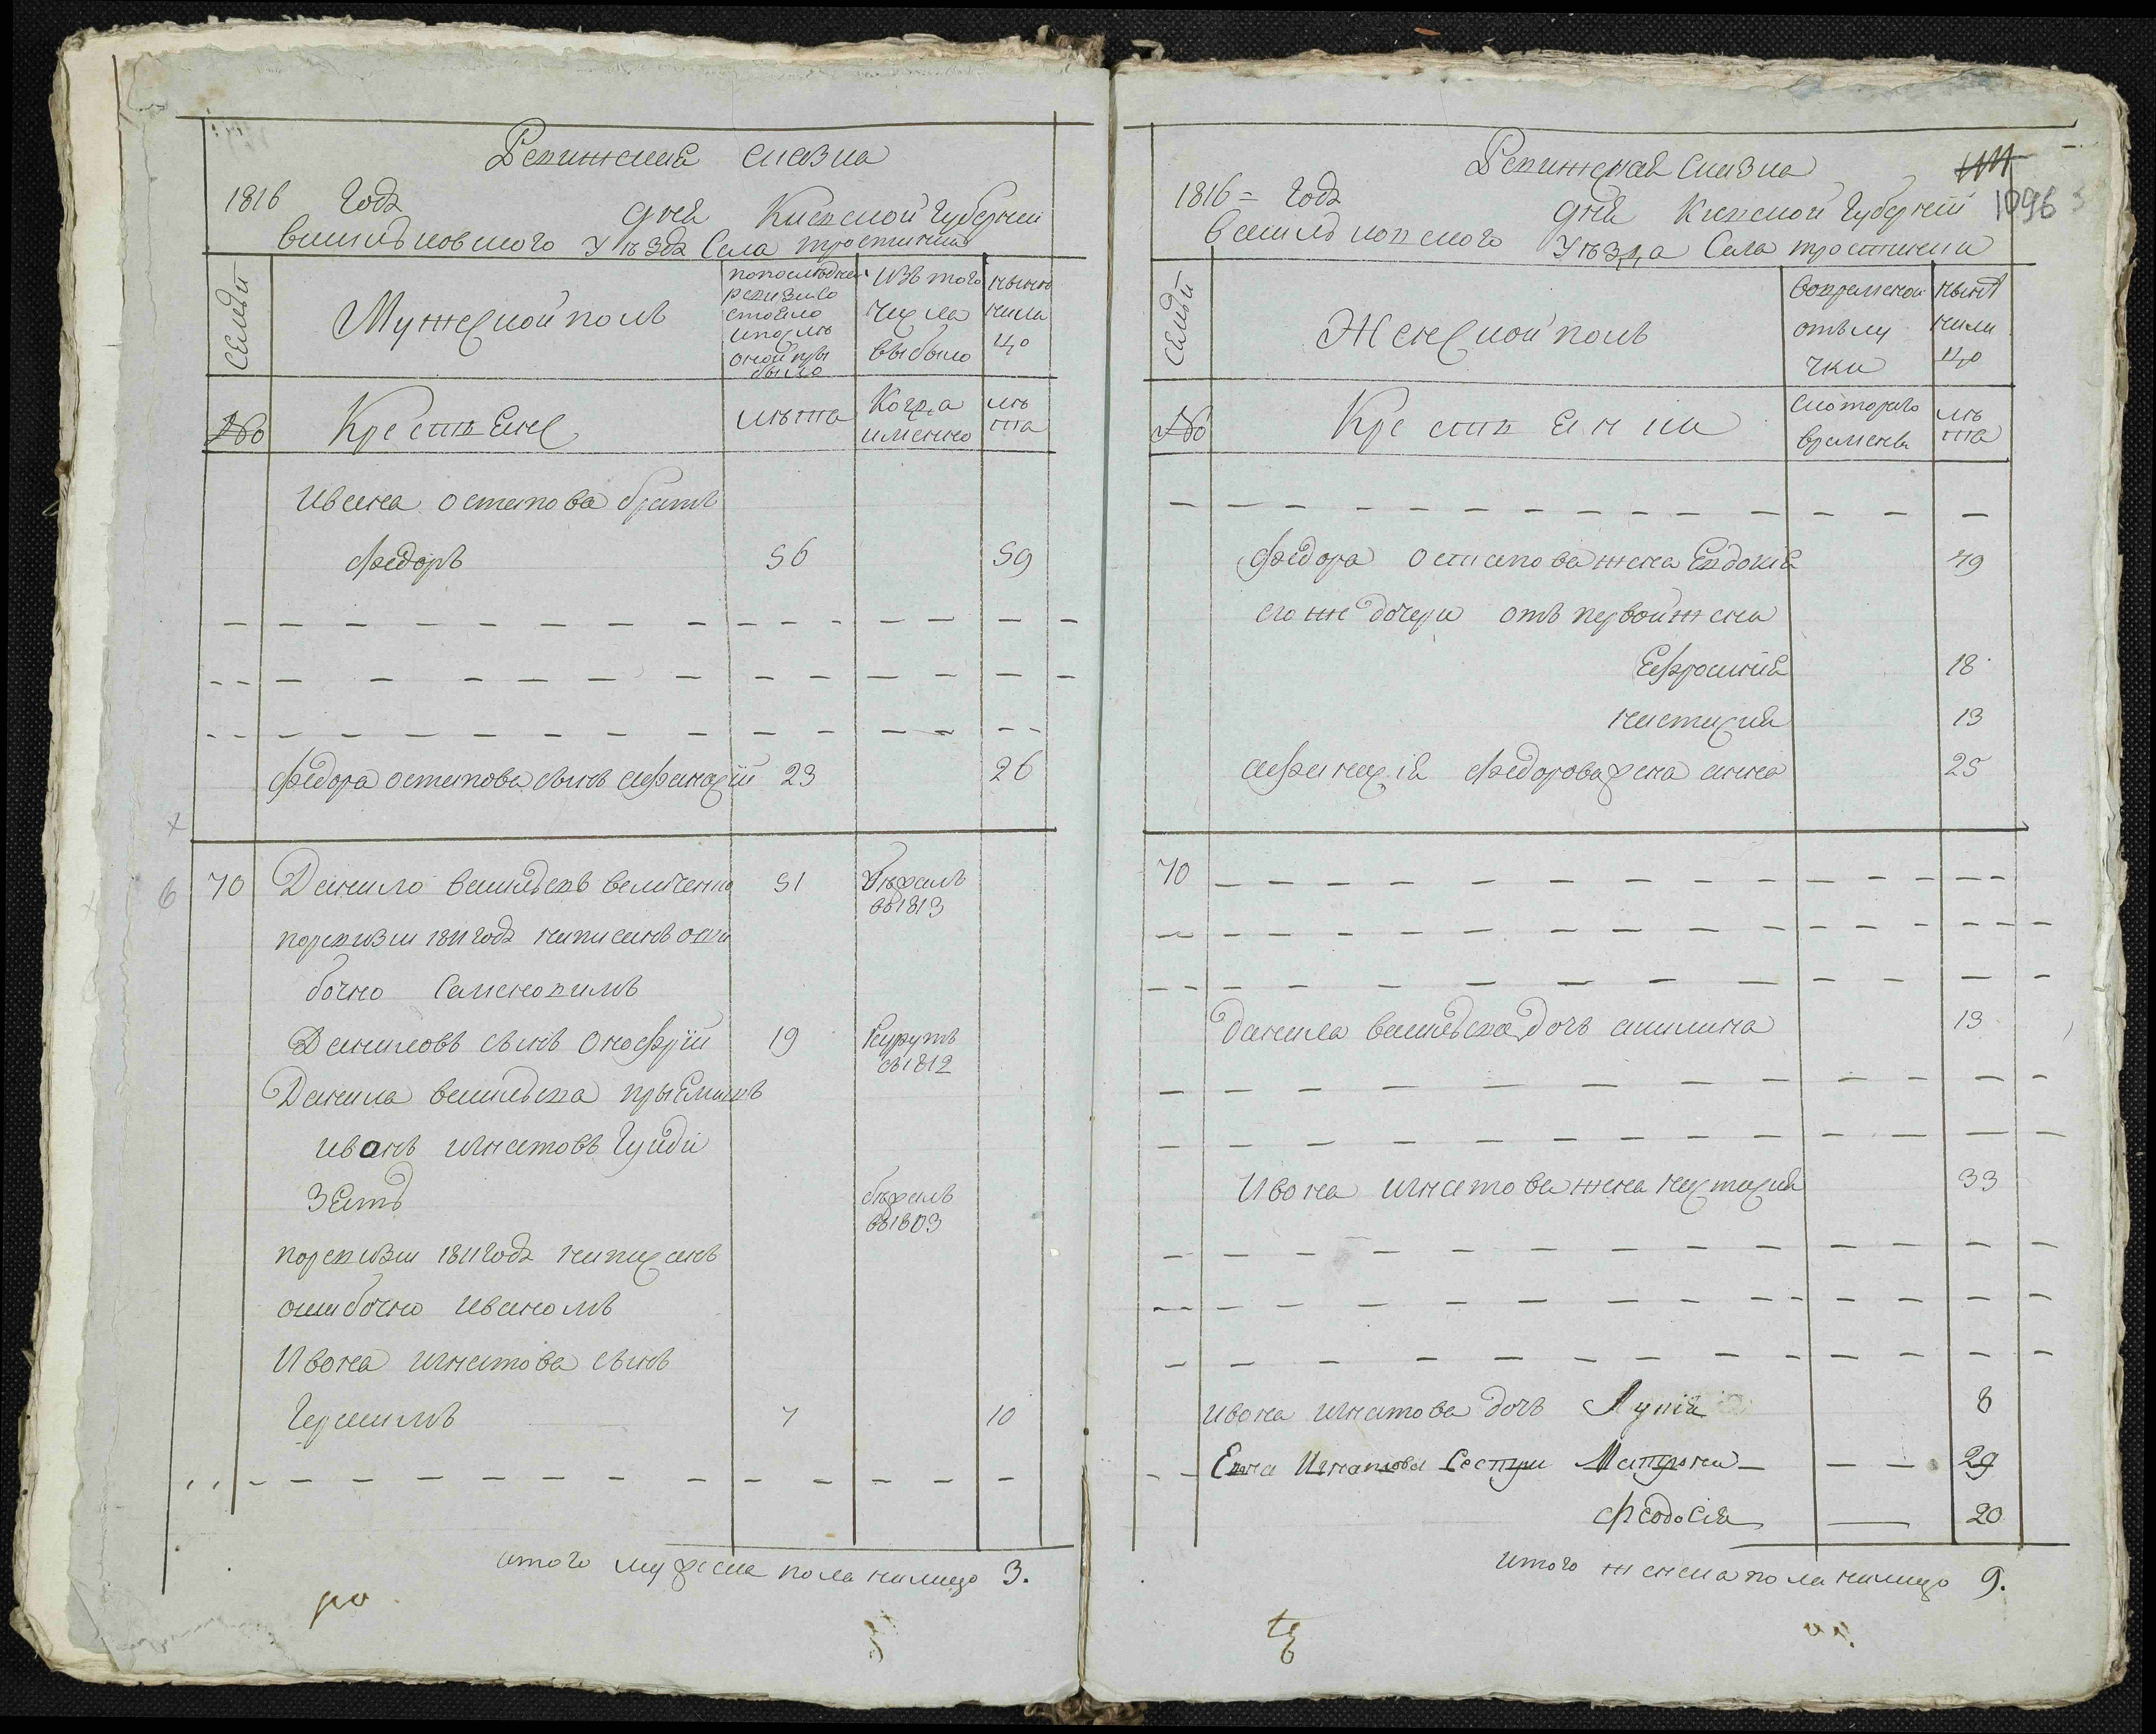 Ревижская сказка
1816 Года дня Киевской Губернии
васильковского Уезда Села тростинки
СЕМЬИ
Мужеской полъ
по последней
ревизии
стояло
и после
оной при
было
Изъ того
числа
выбыло
ныне
нали
цо
№
Крестьяне
лета
Когда
именно
ле
та
Ивана остапова братъ
Федоръ 56 59
Федора остапова сынъ афанасiй 23 26
6 70 Данило васильевъ величенко 51 бежалъ
въ1813
поревизии 1811года написанъ оши
бочно Семеновимъ
Даниловъ сынъ Онофрiй 19 Рекрутъ
въ1812
Данила васильева прыЕмышъ
Иванъ игнатовъ
зять бежалъ
въ1803
поревизии 1811года написанъ
ошибочно Иваномъ
Ивона игнатова сынъ
Герасимъ 7 10
итого мужеска пола налицо 3.
Ревижская Сказка
1096
1816 = Года дня Киевской Губернiи
васильковского Уезда Села тростинки
СЕМЬИ
Женской полъ
вовременой
отълу
чки
ныне
нали
цо
№
Крестьянки
скоторого
времени
ле
та
Федора остапова жена Евдокiя 49
егоже дочери отъ первой жены
Ефросинiя 18
настасия 13
афанасiя Федорова жена анна 25
70
данила васильева дочь акилина 13
Ивона игнатова жена настасия 33
ивона игнатова дочь Лукiя 8
Евона Игнатова Сестры Матрона 29
Феодосiя 20
итого женска пола налицо 9.